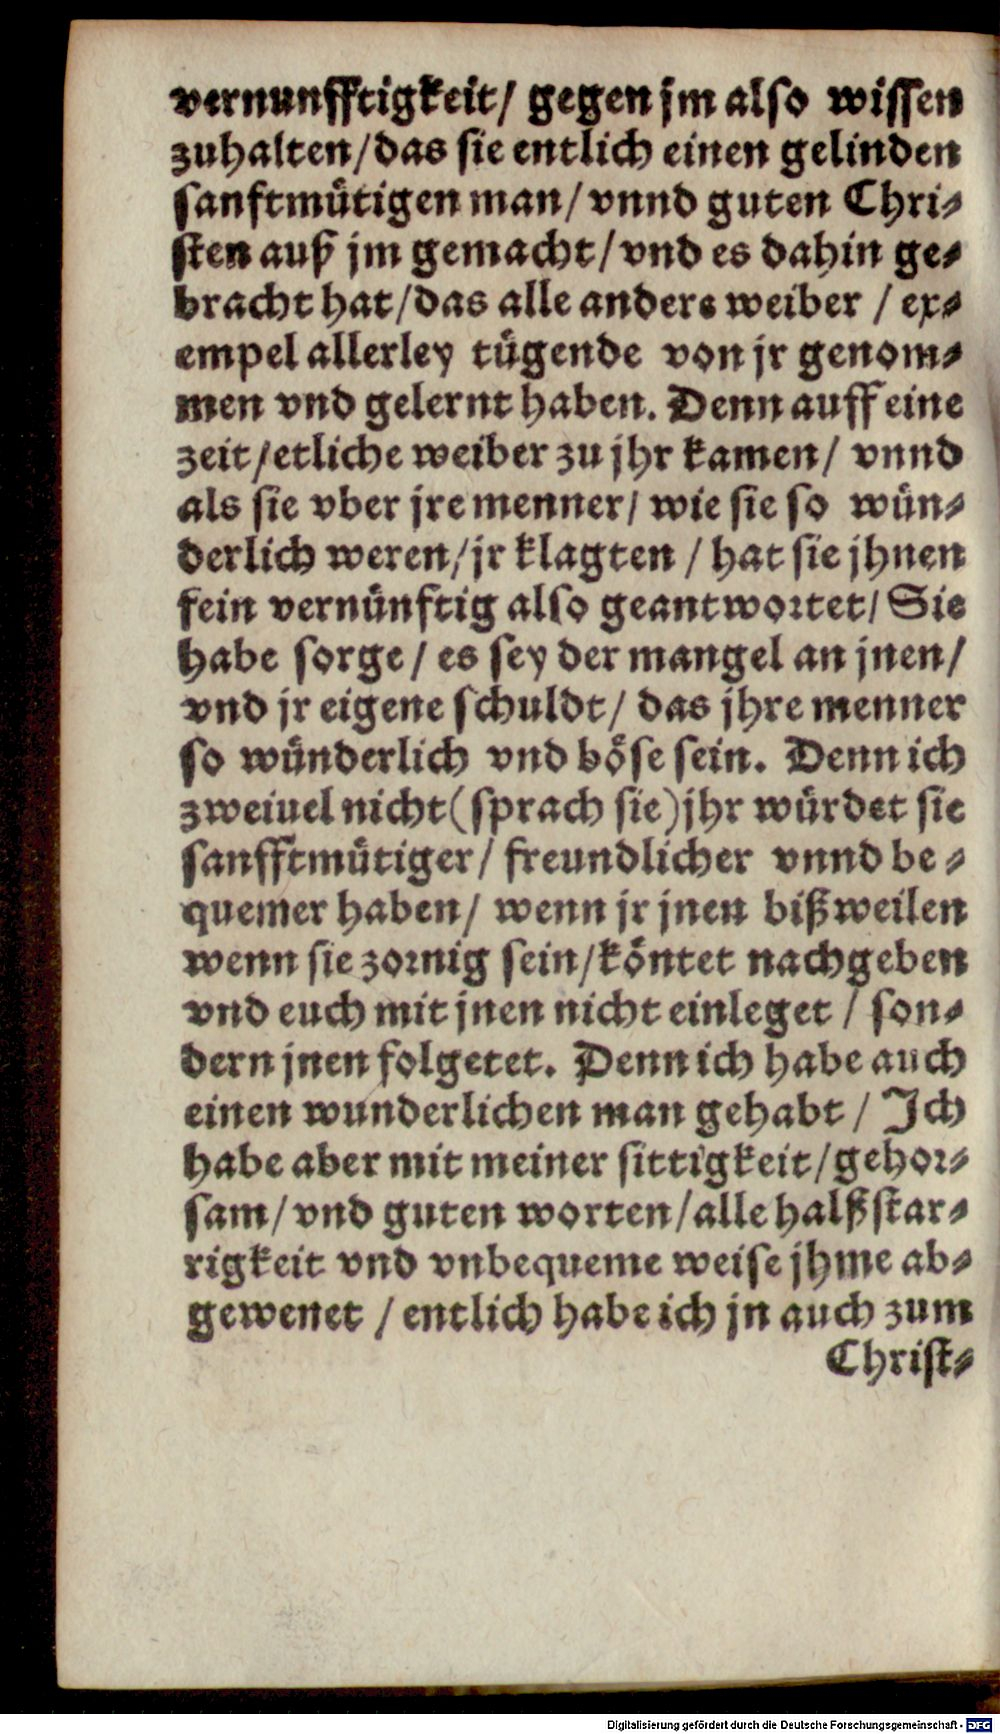 vernunfftigkeit/ gegen jm also wissen
zuhalten/das sie entlich einen gelinden
sanftmütigen man/ vnnd guten Chri-
sten auß jm gemacht/ vnd es dahin ge-
bracht hat/das alle andere weiber / ex-
empel allerley tügende von jr genom-
men vnd gelernt haben. Denn auff eine
zeit/etliche weiber zu jhr kamen/ vnnd
als sie vber jre menner/ wie sie so wün-
derlich weren/jr klagten / hat sie jhnen
fein vernünftig also geantwortet/ Sie
habe sorge / es sey der mangel an jnen/
vnd jr eigene schuldt/ das jhre menner
so wünderlich vnd böse sein. Denn ich
zweiuel nicht(sprach sie)jhr würdet sie
sanfftmütiger/ freundlicher vnnd be-
quemer haben/ wenn jr jnen bißweilen
wenn sie zornig sein/köntet nachgeben
vnd euch mit jnen nicht einleget / son-
dern jnen folgetet. Denn ich habe auch
einen wunderlichen man gehabt / Ich
habe aber mit meiner sittigkeit/gehor-
sam/ vnd guten worten/alle halßstar-
rigkeit vnd vnbequeme weise jhme ab-
gewenet / entlich habe ich jn auch zum
Christ-
Digitalisierung gefördert durch die Deutsche Forschungsgemeinschaft - DFG